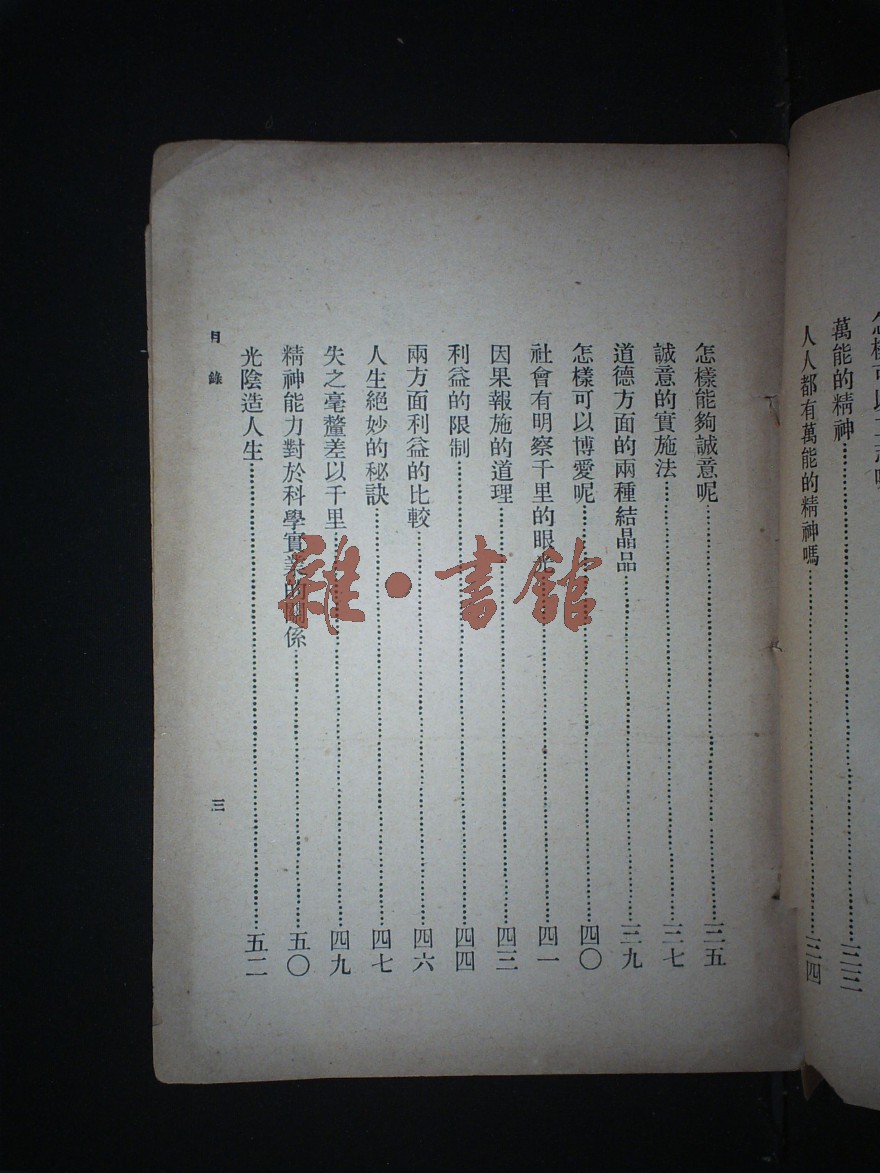 萬能的精神……三三
人人都有萬能的精神嗎……三四
怎樣能夠誠意呢……三五
誠意的實施法……三七
道德方面的兩種結晶品……三九
怎樣可以博愛呢……四〇
社會有明察千里的眼光……四一
因果報施的道理……四三
利益的限制……四四
兩方面利益的比較……四六
人生絕妙的秘訣……四七
失之毫釐差以千里……四九
精神能力對於科學實業的關係……五〇
光陰造人生……五二
目錄
三
雜·書館